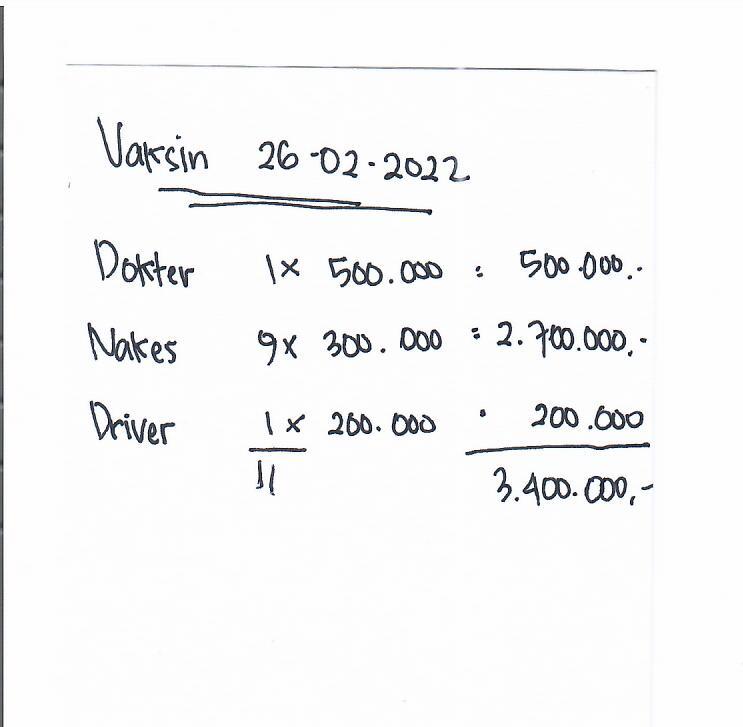 Vaksin 26-02-2022
Dokter 1x 500.000 = 500.000.-
Nakes 9x 300.000 = 2.700.000,-
Driver 1x 200.000 = 200.000
11 3.400.000,-